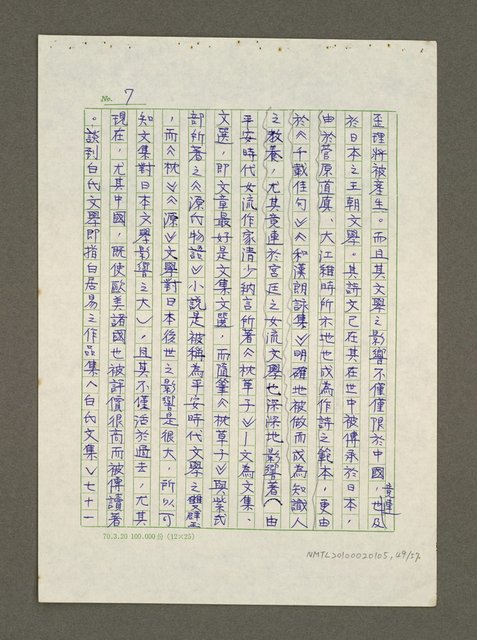 No. 7
歪理將被產生。而且其文學之影響不僅僅限於中國，竟連也及
於日本之王朝文學。其詩文已在其在世中被傳承於日本，
由於菅原道真、大江維時所示地也成為作詩之範本，更由
於《千載佳句》《和漢朗詠集》明確地被做而成為知識人
之教養，尤其竟連於宮廷之女流文學也深深地影響著（由
平安時代女流作家清少納言所著《枕草子》—文為文集、
文選，即文章最好是文集文選，而隨筆《枕草子》與紫式
部所著之《源氏物語》小說是被稱為平安時代文學之雙壁
，而《枕》《源》文學對日本後世之影響是很大，所以可
知文集對日本文學影響之大），且其不僅活於過去，尤其
現在，尤其中國，既使歐美諸國也被評價很高而被傳讀著
。談到白氏文學即指白居易之作品集《白氏文集》七十一
70.3.20 100.000份 (12×25)
NMTL20100020105, 49/57